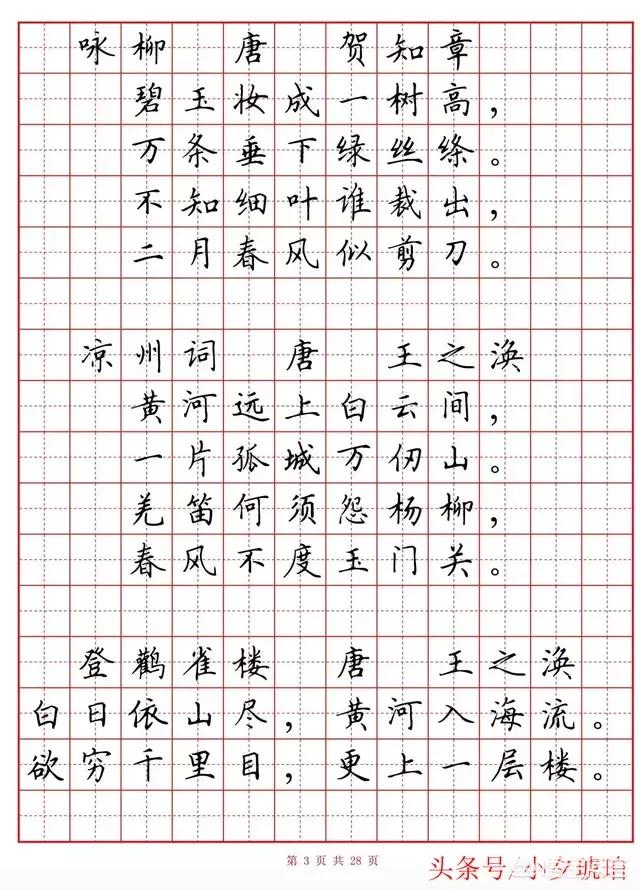 咏柳 唐 贺知章
碧玉妆成一树高，
万条垂下绿丝绦。
不知细叶谁裁出，
二月春风似剪刀。
凉州词 唐 王之涣
黄河远上白云间，
一片孤城万仞山。
羌笛何须怨杨柳，
春风不度玉门关。
登鹳雀楼 唐 王之涣
白日依山尽，黄河入海流。
欲穷千里目，更上一层楼。
第 3 页 共 28 页
头条号/小夕琥珀